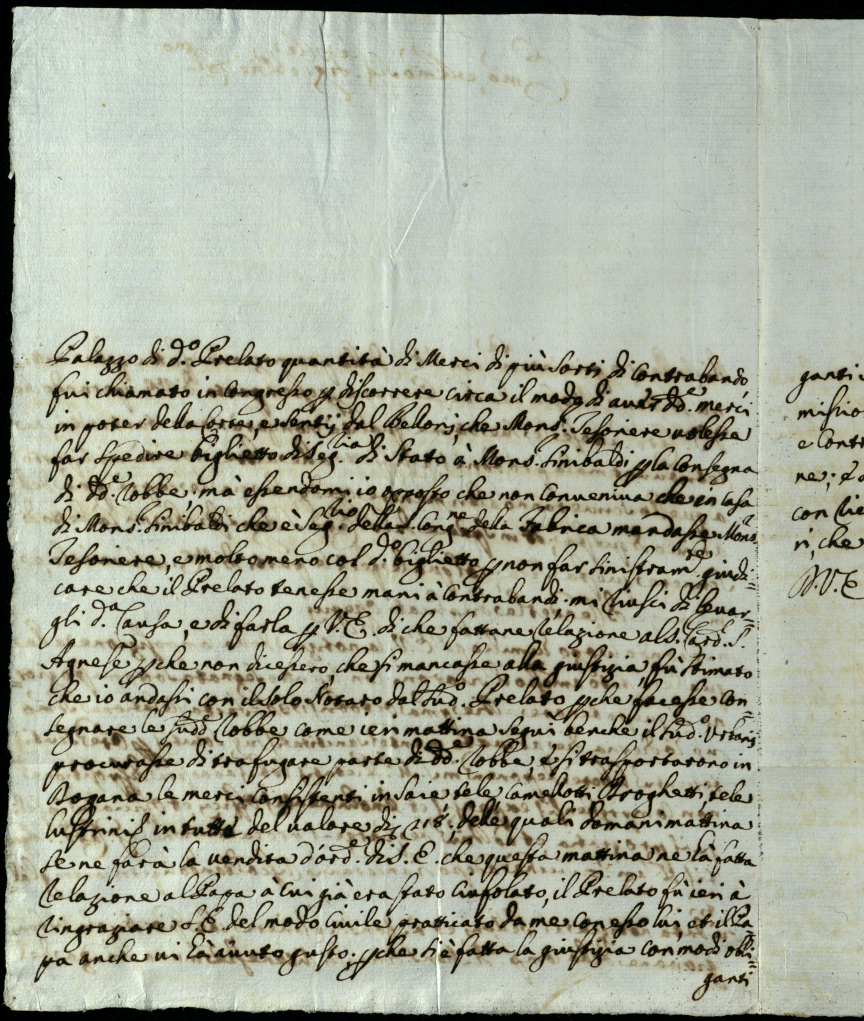 Palazzo di d.º Prelato quantità di Merci di più sorti di Contrabando,
fui chiamato in Congresso p discorrere circa il modo di aver dd.e merci
in poter della Corte, e sentij dal Belloni, che Mons.r Tesoriere volesse
far spedire biglietto di Seg.ria di Stato à Mons.r Sinibaldi p la Consegna
di dd.e Robbe; mà essendomi io opposto che non Conveniva che in Casa
di Mons.r Sinibaldi che è Seg.rio della Cong.ne della Fabrica mandasse Mons.r
Tesoriere, e molto meno col d.º biglietto p non far sinistram.te giudi=
care che il Prelato tenesse mani à Contrabandi. mi riuscì di levar=
gli d.a Causa, e di farla p V.E. di che fattane relazione al S. Card. S.
Agnese pche non dicessero, che si mancasse alla giustizia, fù stimato
che io andassi con il solo Notaro dal sud.º Prelato pche facesse con=
segnare le sudd.e Robbe come ieri mattina seguì benche il sud.º
procurasse di trafugare parte di dd.e Robbe, e si trasportarono in
Dogana le merci Consistenti in Saie tele Camellotti Droghetti, tele
in tutto del valore di 218, delle quali domani mattina
se ne farà la vendita d'ord.e di S.E. che questa mattina ne hà fatta
relazione al Papa à cui già era stato Ciufolato, il Prelato fù ieri à
ringraziare S.E. del modo Civile pratticato da me con esso lui, et il Pa=
pa anche vi hà avuto gusto, pche si è fatta la giustizia con modi obli=
ganti
ganti
missio
e Contr
ne;
con
ri, che
D.V.E